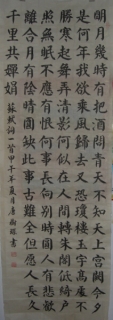 明月幾時有把酒問青天不知天上宮闕今夕
是何年我欲乘風歸去又恐瓊樓玉宇高處不
勝寒起舞弄清影何似在人間轉朱閣低綺戶
照無眠不應有恨何事長向別時圓人有悲歡
離合月有陰晴圓缺此事古難全但願人長久
千里共嬋娟 蘇軾詞一首甲午年夏月書